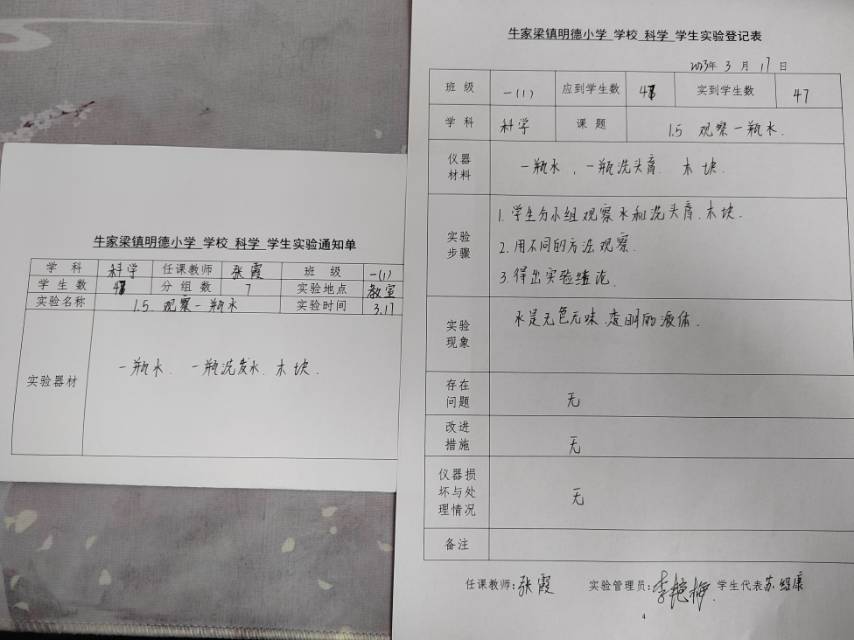 牛家梁镇明德小学 学校 科学 学生实验通知单
学 科 科学 任课教师 张霞 班 级 一(1)
学 生 数 分 组 数 7 实验地点 教室
实验名称 1.5 观察一瓶水 实验时间 3.17
实验器材 一瓶水、一瓶洗发水、木块.
牛家梁镇明德小学 学校 科学 学生实验登记表
2023年 3 月 17 日
班 级 一(1) 应到学生数 实到学生数 47
学 科 科学 课 题 1.5 观察一瓶水.
仪器
材料
一瓶水、一瓶洗头膏. 木块.
实验
步骤
1. 学生分小组观察水和洗头膏.木块.
2. 用不同的方法观察.
3. 得出实验结论.
实验
现象
水是无色无味.透明的液体.
存在
问题
无
改进
措施
无
仪器损
坏与处
理情况
无
备注
任课教师:张霞 实验管理员:李艳梅 学生代表苏绍康
4